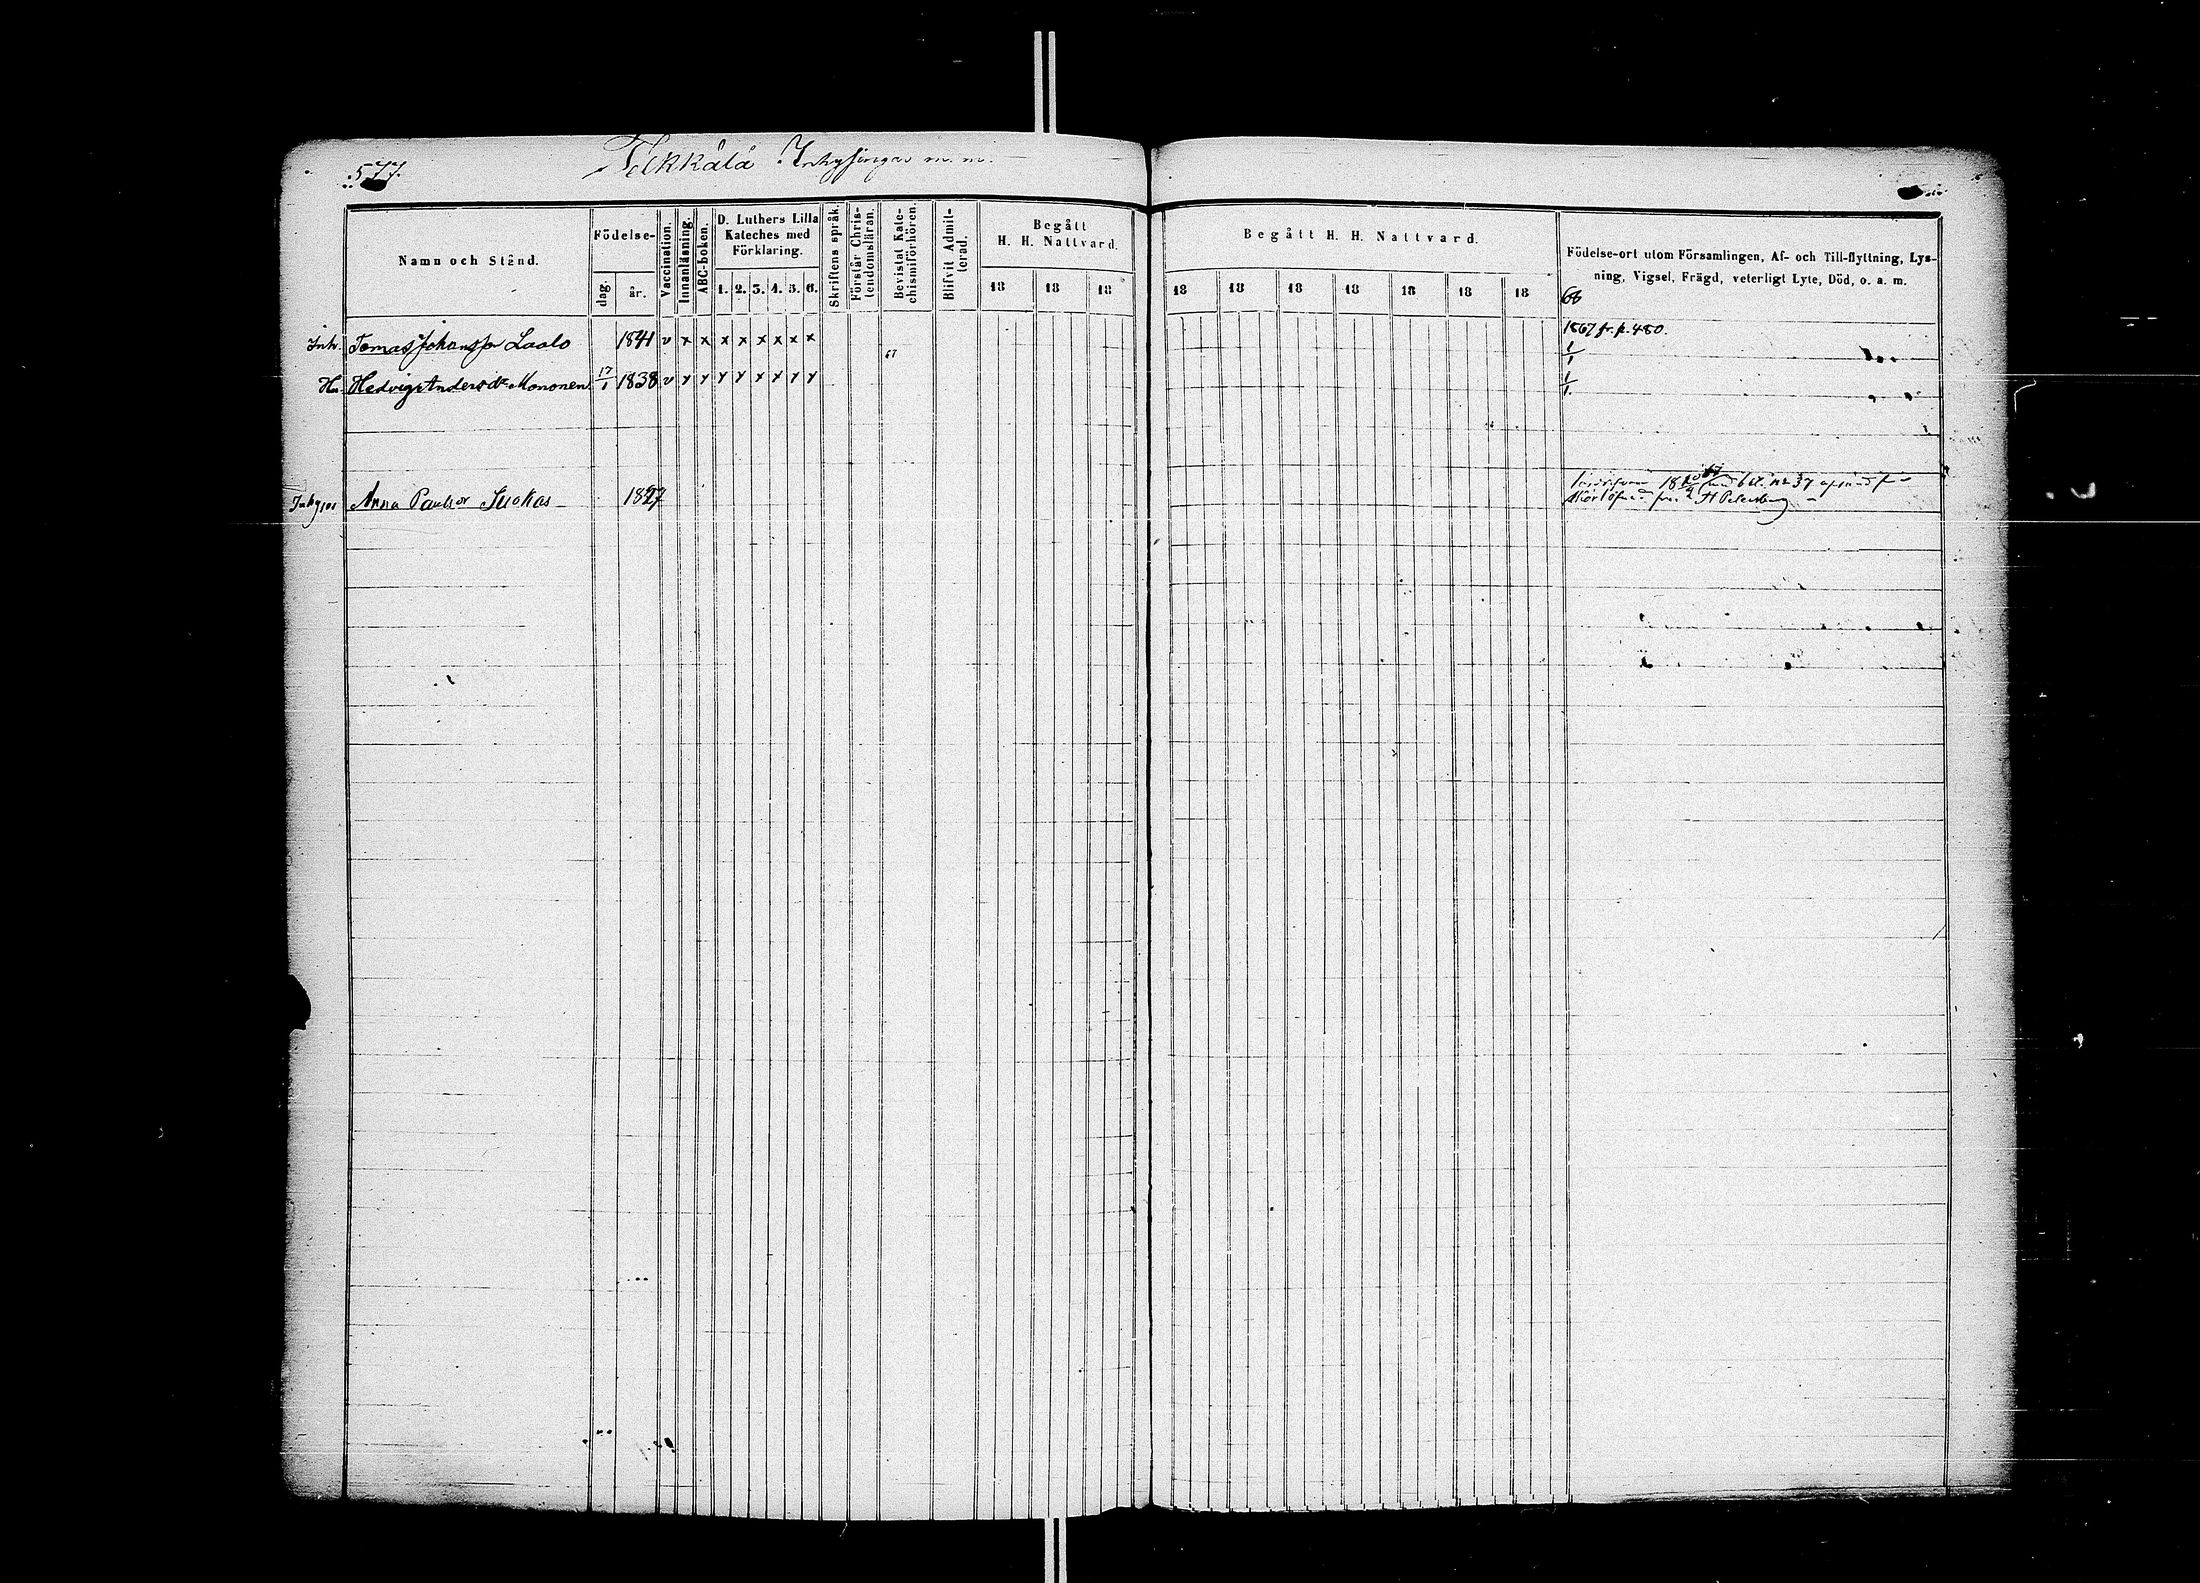 577.
Inhysingar m. m.
Namn och Stånd.
Födelse-
dag.
år.
Vaccination.
Innanläsning.
ABC-boken.
D. Luthers Lilla
Kateches med
Förklaring.
1. 2. 3. 4. 5. 6.
Skriftens språk.
Förstår Chris-
tendomsläran.
Bevistat Kate-
chismiförhören.
Blifvit Admit-
terad.
Begått
H. H. Nattvard.
18 18 18
Begått H. H. Nattvard.
18 18 18 18 18 18 18
Födelse-ort utom Församlingen, Af- och Till-flyttning, Lys-
ning, Vigsel, Frägd, veterligt Lyte, Död, o. a. m.
68
Inh. Tomas Johansson Laalo 1841 v x x x x x x x x 1867 fr. p. 480.
67 1/1
Hu. Hedvig Andersdr Mononen 17/1 1838 v y y y y x x y y 1/1.
Anna Paulsdr Suokas 1827
18 67 med bet. no 37
fr. St Petersburg